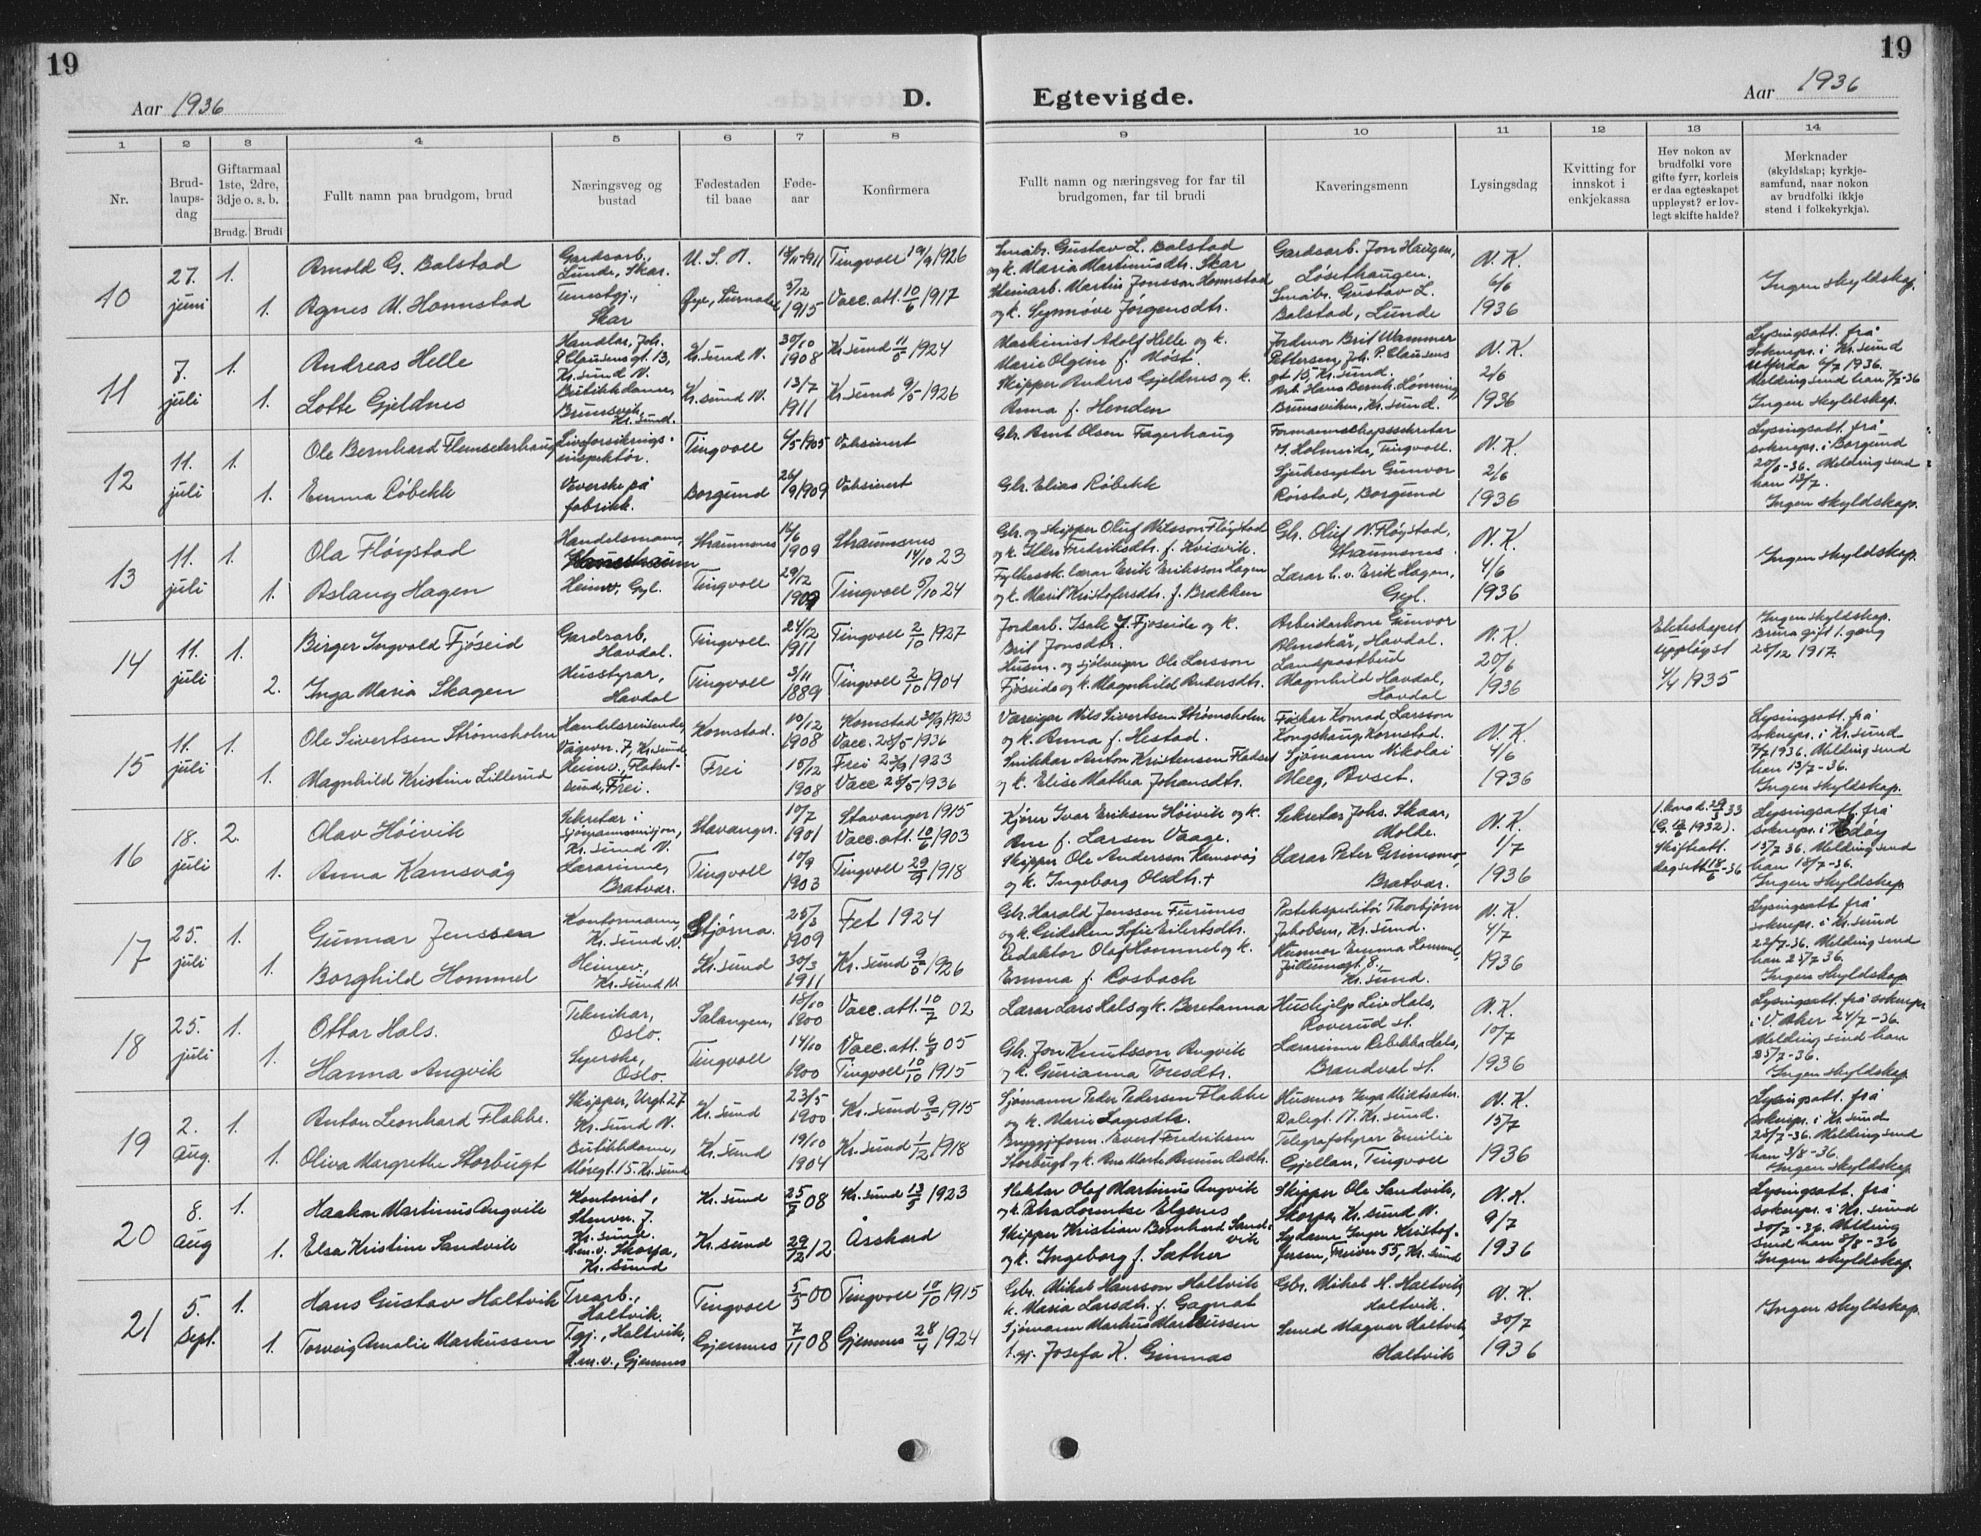 19
19
Aar 1936
D.
Egtevigde.
Aar 1936
1 2 3 4 5 6 7 8 9 10 11 12 13 14
Nr.
Brud-
laups-
dag
Giftarmaal
1ste, 2dre,
3dje o. s. b.
Brudg. Brudi
Fullt namn paa brudgom, brud
Næringsveg og
bustad
Fødestaden
til baae
Føde-
aar
Konfirmera
Fullt namn og næringsveg for far til
brudgomen, far til brudi
Kaveringsmenn
Lysingsdag
Kvitting for
innskot i
enkjekassa
Hev nokon av
brudfolki vore
gifte fyrr, korleis
er daa egteskapet
uppløyst? er lov-
legt skifte halde?
Merknader
(skyldskap; kyrkje-
samfund, naar nokon
av brudfolki ikkje
stend i folkekyrkja).
10
27. juni
1. Arnold G. Bolstad
Gardsarb., Lunde, Skar.
U. S. A.
1911 Tingvoll 19/9 1926
1. Agnes M. Honnstad
Tenestgj., Skar
Øye, Surnadal
3/12 1915 Vacc. att. 10/6 1917
Småbr. Gustav L. Bolstad
og k. Maria Martinusdtr. Skar
Heimarb. Martin Jonsson Honnstad
og k. Synnøve Jørgensdtr.
Gardsarb. Jon Haugen,
Løsethaugen.
Småbr. Gustav L.
Bolstad, Lunde
N. K.
6/6
1936
Ingen skyldskap.
11
7. juli
1. Andreas Helle
Handlar, Joh.
P. Clausensgt. 13,
Kr.sund N.
Kr.sund N.
30/10 1908 Kr.sund 11/5 1924
1. Lotte Gjeldnes
Butikkdame,
Brunsvik,
Kr.sund.
Kr.sund N.
13/7 1911 Kr.sund 9/5 1926
Maskinist Adolf Helle og k.
Marie Olgine f. Møst
Skipper Anders Gjeldnes og k.
Anna f. Henden
Jordmor Brit Wammer
Pettersen, Joh. P. Clausens
gt 15, Kr.sund.
Arb. Hans Bernh. Lønning,
Brunsviken, Kr.sund.
N. K.
2/6
1936
Lysingsatt. frå
sokneps. i Kr.sund
utferda 4/7 1936.
Melding send han 7/7-36
Ingen skyldskap.
12
11. juli
1. Ole Bernhard Flemseterhaug
Livsforsikrings-
inspektør.
Tingvoll
4/5 1905 Vaksinert
1. Emma Røbekk
Veverske på
fabrikk.
Borgund
26/9 1909 Vaksinert
Gbr. Arnt Olsen Fagerhaug
Gbr. Elias Røbekk
Formannskapssekretær
Holmeide, Tingvoll.
Sjukesyster Gunvor
Rørstad, Borgund
N. K.
2/6
1936
Lysingsatt. frå
sokneps. i Borgund
20/6-36. Melding send
han 13/7.
Ingen skyldskap.
13
11. juli
1. Ola Fløystad
Handelsmann,
Straumsnes
16/6 1909
Straumsnes
14/10 23
1. Aslaug Hagen
Heimv., Gyl.
Tingvoll
29/12 1909 Tingvoll 5/10 24
Gbr. og skipper Oluf Nilsson Fløystad
og k. Ellen Fredriksdtr. f. Kvisvik.
Fylkessk.lærar Erik Eriksson Hagen
og k. Marit Kristofersdtr. f. Brakken
Gbr. Oluf N. Fløystad,
Straumsnes.
Lærar h. v. Erik Hagen,
Gyl.
N. K.
4/6
1936
Ingen skyldskap.
14
11. juli
1. Birger Ingvald Fjøseid
Gardsarb.
Havdal.
Tingvoll.
24/12 1911 Tingvoll 2/10 1927
2. Inga Maria Skagen
Husstyrar,
Havdal
Tingvoll
3/11 1889 Tingvoll 2/10 1904
Jordarb. Isak J. Fjøseide og k.
Brit Jonsdtr.
Husm. og sjølveigar Ole Larsson
Fjøseide og k. Magnhild Andersdtr.
Arbeidarkone Gunvor
Almskår, Havdal.
Landpostbud
Magnhild Havdal,
Havdal
N. K.
20/6
1936
Ekteskapet
uppløyst
4/4 1935
Ingen skyldskap.
Brura gift 1. gang
28/12 1917.
15
11. juli
1. Ole Sivertsen Strømsholm
Handelsreisende
Vågevn. 7, Kr.sund
Kornstad.
10/12 1908
Kornstad 30/9 1923
Vacc. 28/5 1936
1. Magnhild Kristine Lillerud
Heimv., Flatset-
sund, Frei.
Frei
15/12 1908
Frei 23/9 1923
Vacc 28/5 1936
Væreigar Nils Sivertsen Strømsholm
og k. Anna f. Hestad.
Snikkar Anton Kristensen Flatset
og k. Elise Mathea Johansdtr.
Fiskar Konrad Larsson
Kongshaug, Kornstad.
Sjømann Nikolai
Meeg, Avset.
N. K.
4/6
1936
Lysingsatt. frå
sokneps. i Kr.sund
7/7 1936. Melding send
han 13/7-36.
Ingen skyldskap.
16
18. juli
2. Olav Høivik
Sekretær i
sjømannsmisjon,
Kr.sund N.
Stavanger.
10/7 1901
Stavanger 1915
Vacc. att. 10/6 1903
1. Anna Kamsvåg
Lærarinne,
Bratvær.
Tingvoll
10/9 1903 Tingvoll 29/9 1918
Kjører Ivar Eriksen Høivik og k.
Ane f. Larsen Vaage.
Skipper Ole Andersson Kamsvåg
og k. Ingeborg Olsdtr. +
Sekretær Johs. Skaar,
Molde.
Lærar Peter Grimsmo,
Bratvær.
N. K.
1/7
1936
1. kona d. 33
1932).
Skifteatt.
dagsett 18/6-36
Lysingsatt. frå
sokneps. i Edøy
15/7 36. Melding send
han 18/7-36.
Ingen skyldskap.
17
25. juli
1. Gunnar Jenssen
Kontormann,
Kr.sund N.
Stjørna.
25/3 1909 Fet 1924
1. Borghild Hommel
Heimev.,
Kr.sund N.
Kr.sund
30/3 1911 Kr.sund 9/5 1926
Gbr. Harald Jenssen Furunes
og k. Sofie Eilertsdtr.
Redaktør Olaf Hommel og k.
Emma f. Rosbach
Postekspeditør Thorbjørn
Jakobsen, Kr.sund.
Husmor Emma Hommel,
Kr.sund.
N. K.
4/7
1936
Lysingsatt frå
sokneps. i Kr.sund
22/7-36. Melding send
han 25/7 36.
Ingen skyldskap
18
25. juli
1. Ottar Hals.
Teknikar,
Oslo.
Salangen,
18/10 1900 Vacc. att. 10/7 02
1. Hanna Angvik
Syerske,
Oslo.
Tingvoll
14/10 1900
Vacc. att. 6/8 05
Tingvoll 10/10 1915
Lærar Lars Hals og k. Beretanna
Gbr. Jon Knutsson Angvik
og k. Gurianna Toresdtr.
Hushjelp Liv Hals,
Roverud st.
Lærarinne Rebekka Hals,
Brandval st.
N. K.
10/7
1936
Lysingsatt. frå sokneps.
i V. Aker 24/7-36.
Melding send han
25/7-36.
Ingen skyldskap
19
2. aug.
1. Anton Leonhard Flakke.
Skipper, Vugt. 27
Kr.sund N.
Kr.sund
23/5 1900 Kr.sund 9/5 1915
1. Oliva Margrethe Storbugt
Butikkdame,
Møregt. 15. Kr.sund
Kr.sund
19/10 1904 Kr.sund 1/12 1918
Sjømann Peder Pedersen Flakke
og k. Marie Larsdtr.
Bryggjeform. Evert Fredriksen
Storbugt og k. Ane Marta
Husmor Inga Midtsæter
Dalegt. 17. Kr.sund.
Telegrafstyrer Emilie
Gjellan, Tingvoll
N. K.
15/7
1936
Lysingsatt. frå
sokneps. i Kr.sund
28/7-36. Melding send
han 3/8-36.
Ingen skyldskap.
20
8. aug
1. Haakon Martinus Angvik
Kontorist,
Stenvn. 7.
Kr.sund.
Kr.sund
08 Kr.sund 13/5 1923
1. Elsa Kristine Sandvik
Hm.v. Skorpa,
Kr.sund
Kr.sund
29/12 12 Åsskard
Hektor Olaf Martinus Angvik
og k. Petra Lorentse Elgenes
Skipper Kristian Bernhard Sand-
vik
og k. Ingeborg f. Sæther
Skipper Ole Sandvik,
Skorpa, Kr.sund N.
Sydame Inger Kristof-
fersen, Freivn 55, Kr.sund
N. K.
9/7
1936
Lysingsatt. frå
sokneps. i Kr.sund
30/7-36. Melding
send han 8/8-36
Ingen skyldskap.
21
5. sept.
1. Hans Gustav Holtvik
Trearb.,
Holtvik.
Tingvoll
5/5 00 Tingvoll 10/10 1915
1. Torveig Amalie Markussen
Tgj., Holtvik,
Hm.v., Gjemnes
Gjemnes
7/11 08 Gjemnes 28/4 1924
Gbr. Mikal Hansson Holtvik
k. Maria Larsdtr. f. Gagnat
Sjømann Markus Markussen
t. gj. Josefa K. Gimnæs
Gbr. Mikal H. Holtvik
Holtvik.
Smed Magnar Holtvik,
Holtvik
N. K.
30/7
1936
Ingen skyldskap.